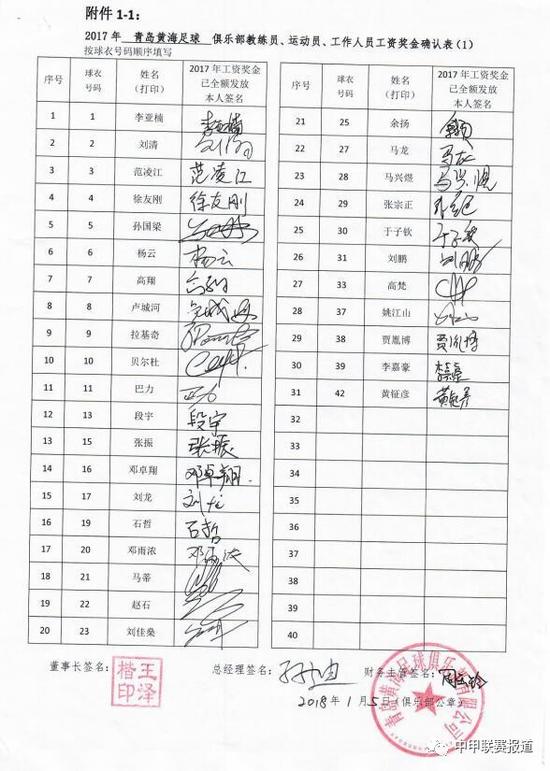 附件 1-1:
2017 年 青岛黄海足球 俱乐部教练员、运动员、工作人员工资奖金确认表（1）
按球衣号码顺序填写
序号 球衣号码 姓名（打印） 2017 年工资奖金已全额发放本人签名
1 1 李亚楠 李亚楠
2 2 刘清
3 3 范凌江 范凌江
4 4 徐友刚 徐友刚
5 5 孙国梁
6 6 杨云 杨云
7 7 高翔 高翔
8 8 卢城河
9 9 拉基奇
10 10 贝尔杜
11 11 巴力
12 13 段宇 段宇
13 15 张振 张振
14 16 邓卓翔 邓卓翔
15 17 刘龙 刘龙
16 19 石哲 石哲
17 20 邓雨浓 邓雨浓
18 21 马蒂
19 22 赵石
20 23 刘佳燊
21 25 余扬
22 27 马龙 马龙
23 28 马兴煜 马兴煜
24 29 张宗正
25 30 于子钦 于子钦
26 31 刘鹏 刘鹏
27 33 高梵
28 37 姚江山
29 38 贾胤博 贾胤博
30 39 李嘉豪
31 42 黄钲彦
32
33
34
35
36
37
38
39
40
董事长签名： 王泽楷印 总经理签名： 财务主管签名：
2018 年 1 月 5 日（俱乐部公章）
中甲联赛报道